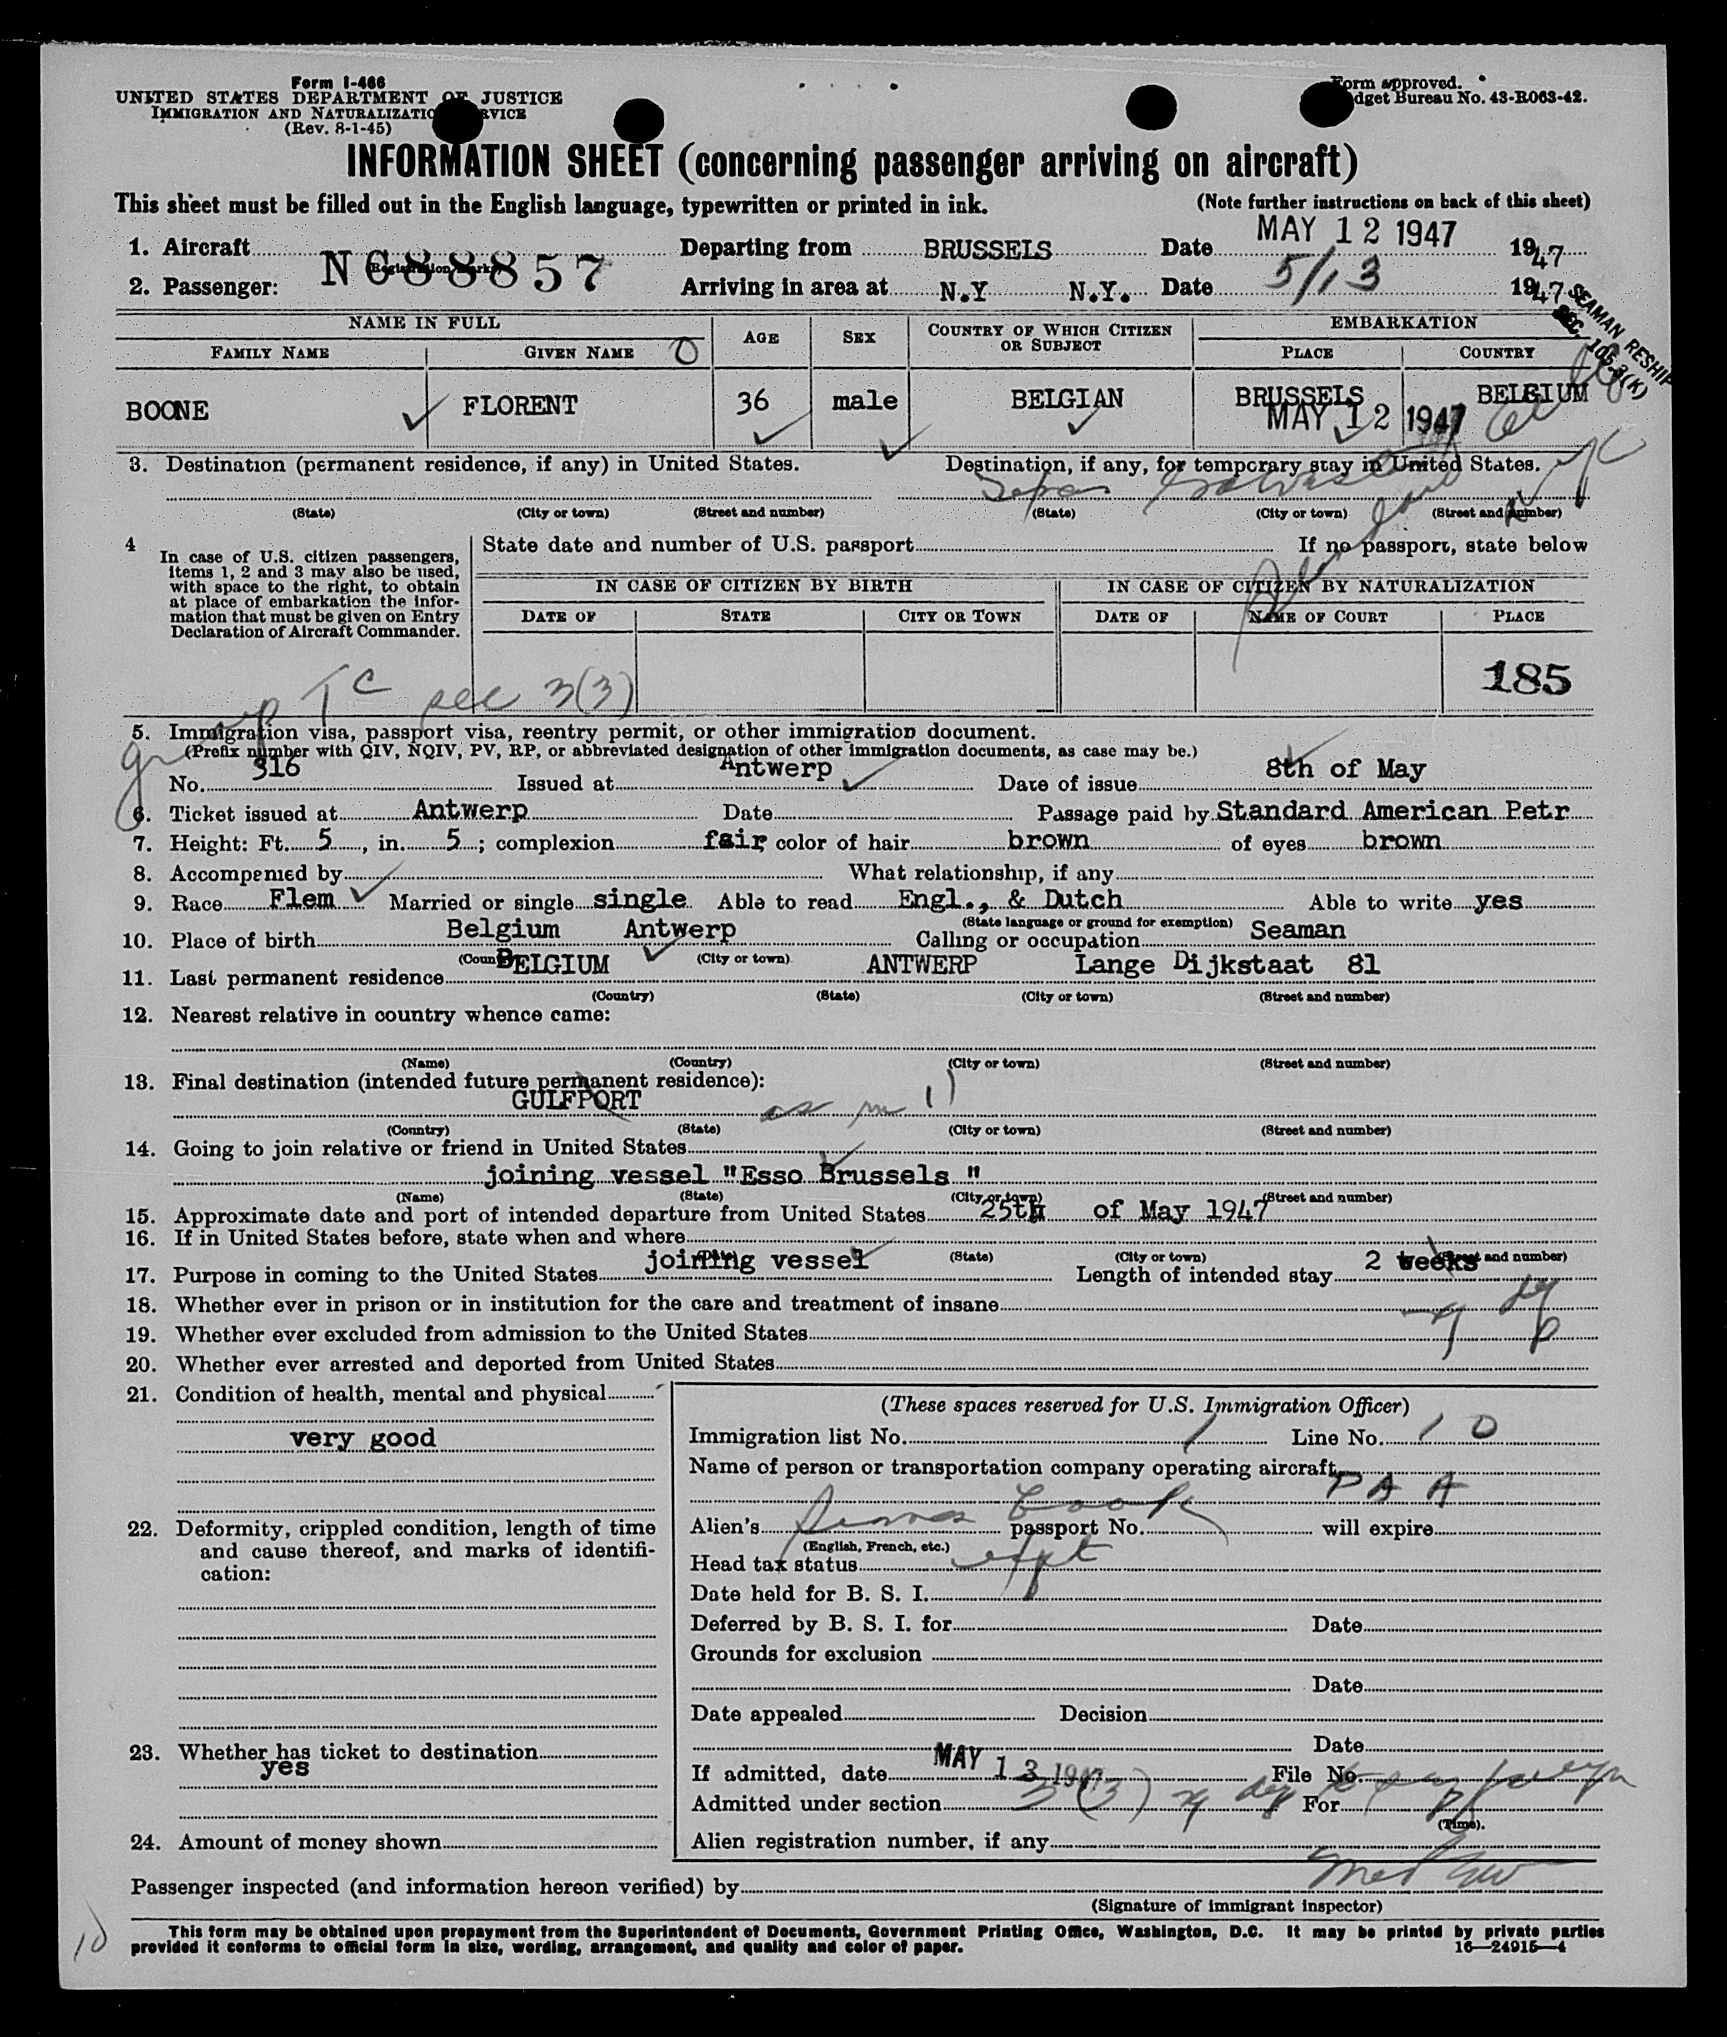 Form I-466
UNITED STATES DEPARTMENT OF JUSTICE
IMMIGRATION AND NATURALIZATION SERVICE
(Rev. 8-1-45)
Form approved.
Budget Bureau No. 43-R063-42.
INFORMATION SHEET (concerning passenger arriving on aircraft)
This sheet must be filled out in the English language, typewritten or printed in ink.
(Note further instructions on back of this sheet)
1. Aircraft N 68 8857 Departing from BRUSSELS Date MAY 12 1947 1947
(Registration marks)
2. Passenger: Arriving in area at N.Y N.Y. Date 5/13 1947
SEAMAN RESHIP
SEC. 105.3(K)
NAME IN FULL AGE SEX COUNTRY OF WHICH CITIZEN OR SUBJECT EMBARKATION
FAMILY NAME GIVEN NAME PLACE COUNTRY
BOONE FLORENT 36 male BELGIAN BRUSSELS BELGIUM
MAY 12 1947
3. Destination (permanent residence, if any) in United States. Destination, if any, for temporary stay in United States.
(State) (City or town) (Street and number) (State) (City or town) (Street and number)
4
In case of U.S. citizen passengers,
items 1, 2 and 3 may also be used,
with space to the right, to obtain
at place of embarkation the infor-
mation that must be given on Entry
Declaration of Aircraft Commander.
State date and number of U.S. passport If no passport, state below
IN CASE OF CITIZEN BY BIRTH IN CASE OF CITIZEN BY NATURALIZATION
DATE OF STATE CITY OR TOWN DATE OF NAME OF COURT PLACE
185
TC sec 3(3)
5. Immigration visa, passport visa, reentry permit, or other immigration document.
(Prefix number with QIV, NQIV, PV, RP, or abbreviated designation of other immigration documents, as case may be.)
No. 316 Issued at Antwerp Date of issue 8th of May
6. Ticket issued at Antwerp Date Passage paid by Standard American Petr
7. Height: Ft. 5, in. 5; complexion fair, color of hair brown of eyes brown
8. Accompenied by What relationship, if any
9. Race Flem Married or single single Able to read Engl., & Dutch Able to write yes
(State language or ground for exemption)
10. Place of birth Belgium Antwerp Calling or occupation Seaman
(Country) (City or town)
11. Last permanent residence BELGIUM ANTWERP Lange Dijkstaat 81
(Country) (State) (City or town) (Street and number)
12. Nearest relative in country whence came:
(Name) (Country) (City or town) (Street and number)
13. Final destination (intended future permanent residence):
GULFPORT
(Country) (State) (City or town) (Street and number)
14. Going to join relative or friend in United States
joining vessel "Esso Brussels "
(Name) (State) (City or town) (Street and number)
15. Approximate date and port of intended departure from United States 25th of May 1947
16. If in United States before, state when and where
(Date) (State) (City or town) (Street and number)
17. Purpose in coming to the United States joining vessel Length of intended stay 2 weeks
18. Whether ever in prison or in institution for the care and treatment of insane
19. Whether ever excluded from admission to the United States
20. Whether ever arrested and deported from United States
21. Condition of health, mental and physical
very good
22. Deformity, crippled condition, length of time
and cause thereof, and marks of identifi-
cation:
23. Whether has ticket to destination
yes
24. Amount of money shown
(These spaces reserved for U.S. Immigration Officer)
Immigration list No. 1 Line No. 10
Name of person or transportation company operating aircraft
PAA
Alien's Seamans book passport No. will expire
(English, French, etc.)
Head tax status
Date held for B. S. I.
Deferred by B. S. I. for Date
Grounds for exclusion
Date
Date appealed Decision
Date
If admitted, date MAY 13 1947 File No.
Admitted under section 3(3) For
(Time).
Alien registration number, if any
Passenger inspected (and information hereon verified) by
(Signature of immigrant inspector)
This form may be obtained upon prepayment from the Superintendent of Documents, Government Printing Office, Washington, D.C. It may be printed by private parties
provided it conforms to official form in size, wording, arrangement, and quality and color of paper.
16—24915—4